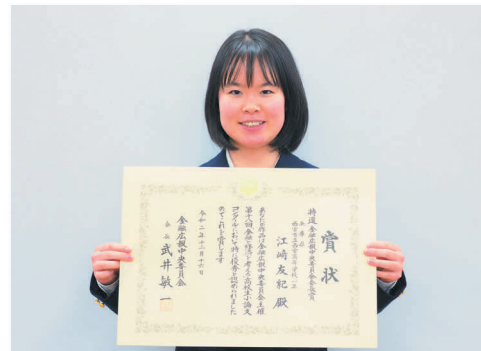 賞状
特選 金融広報中央委員会会長賞
兵庫県
江﨑友紀 殿
あなたの作品は金融広報中央委員会主催
第十八回「金融と経済を考える」高校生小論文
コンクールにおいて特に優秀と認められました
のでこれを賞します
令和二年十二月十六日
金融広報中央委員会
会長 武井敏一